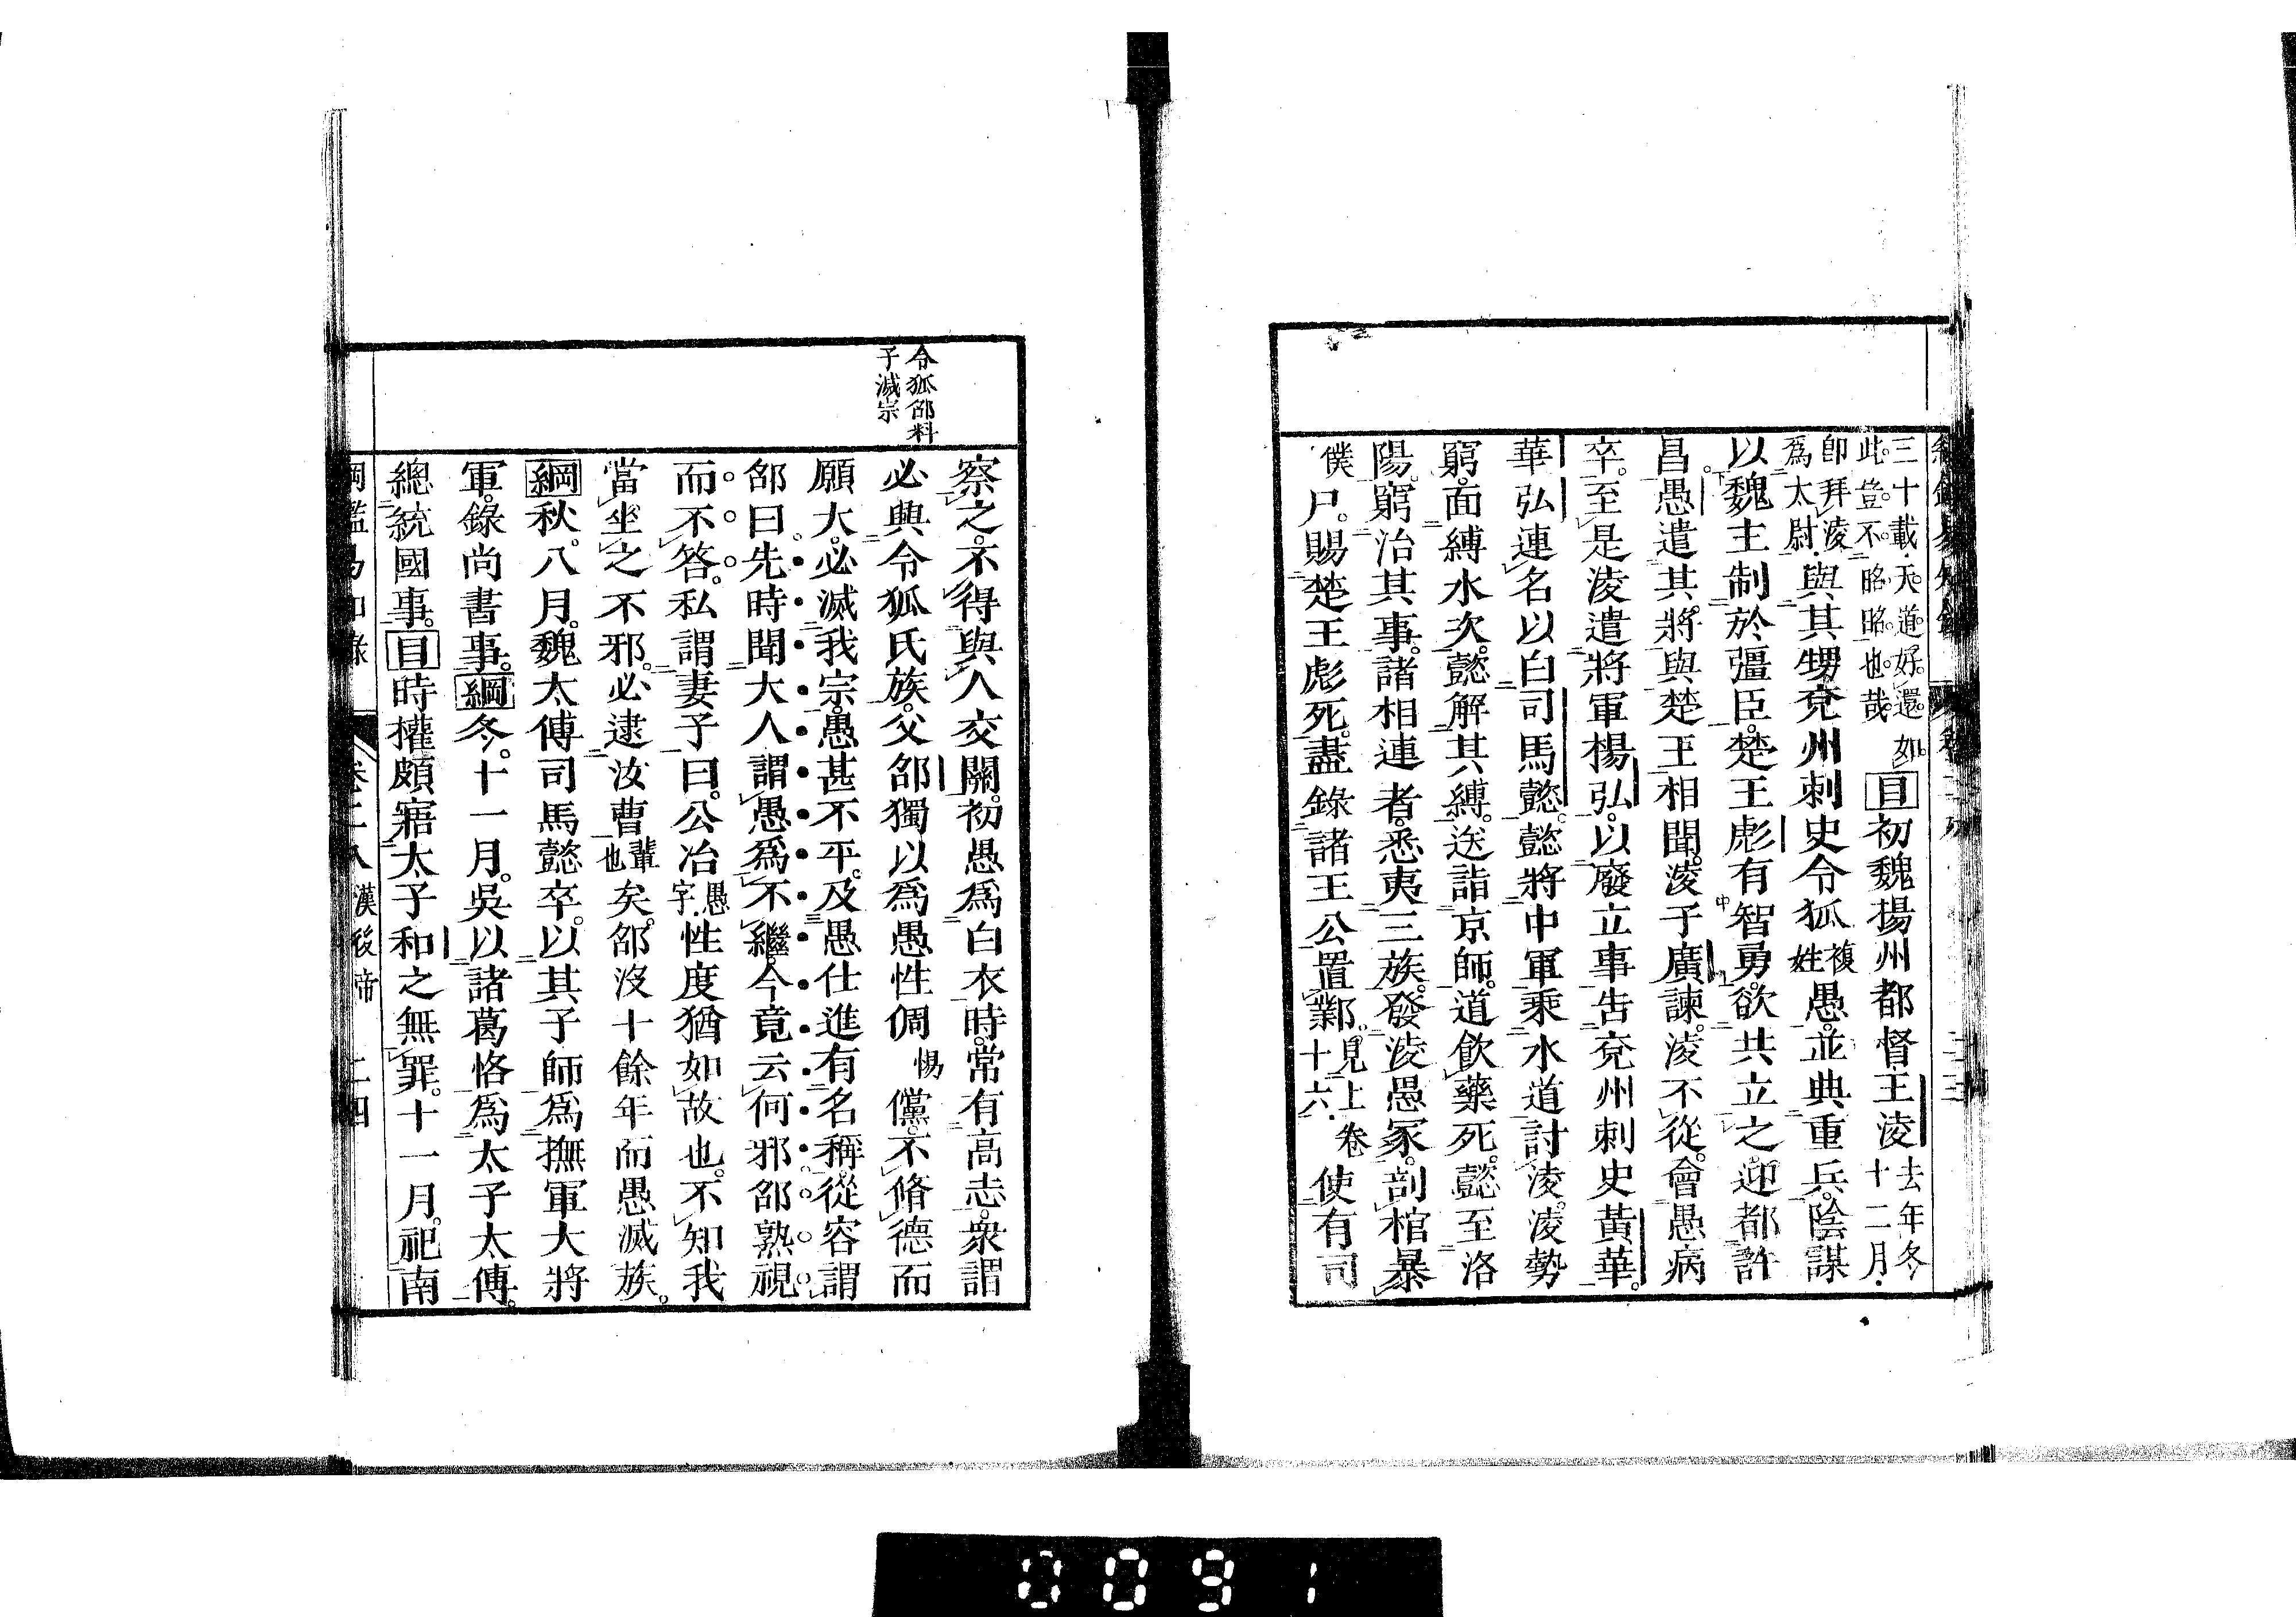 三十載天道好還
此豈不昭昭也哉如目初魏揚州都督王淩去年冬
十二月
卽拜淩
爲太尉與其甥兗州刺史令狐複姓愚並典重兵陰謀
以魏主制於彊臣楚王彪有智勇欲共立之迎都許
昌愚遣其將與楚王相聞淩子廣諫淩不從會愚病
卒至是淩遣將軍楊弘以廢立事告兗州刺史黃華
華弘連名以白司馬懿懿將中軍乘水道討淩淩勢
窮面縛水次懿解其縛送詣京師道飲藥死懿至洛
陽窮治其事諸相連者悉夷三族發淩愚冢剖棺暴
僕尸賜楚王彪死盡錄諸王公置鄴見上卷十六使有司
令狐邵料
子滅宗
察之不得與人交關初愚爲白衣時常有高志衆謂
必興令狐氏族父邵獨以爲愚性倜惕儻不脩德而
願大必滅我宗愚甚不平及愚仕進有名稱從容謂
邵曰先時聞大人謂愚爲不繼今竟云何邪邵熟視
而不答私謂妻子曰公冶愚字性度猶如故也不知我
當坐之不邪必逮汝曹輩也矣邵沒十餘年而愚滅族
綱秋八月魏太傅司馬懿卒以其子師爲撫軍大將
軍錄尚書事綱冬十一月吳以諸葛恪爲太子太傅
總統國事目時權頗寤太子和之無罪十一月祀南
漢後帝 二四
0091